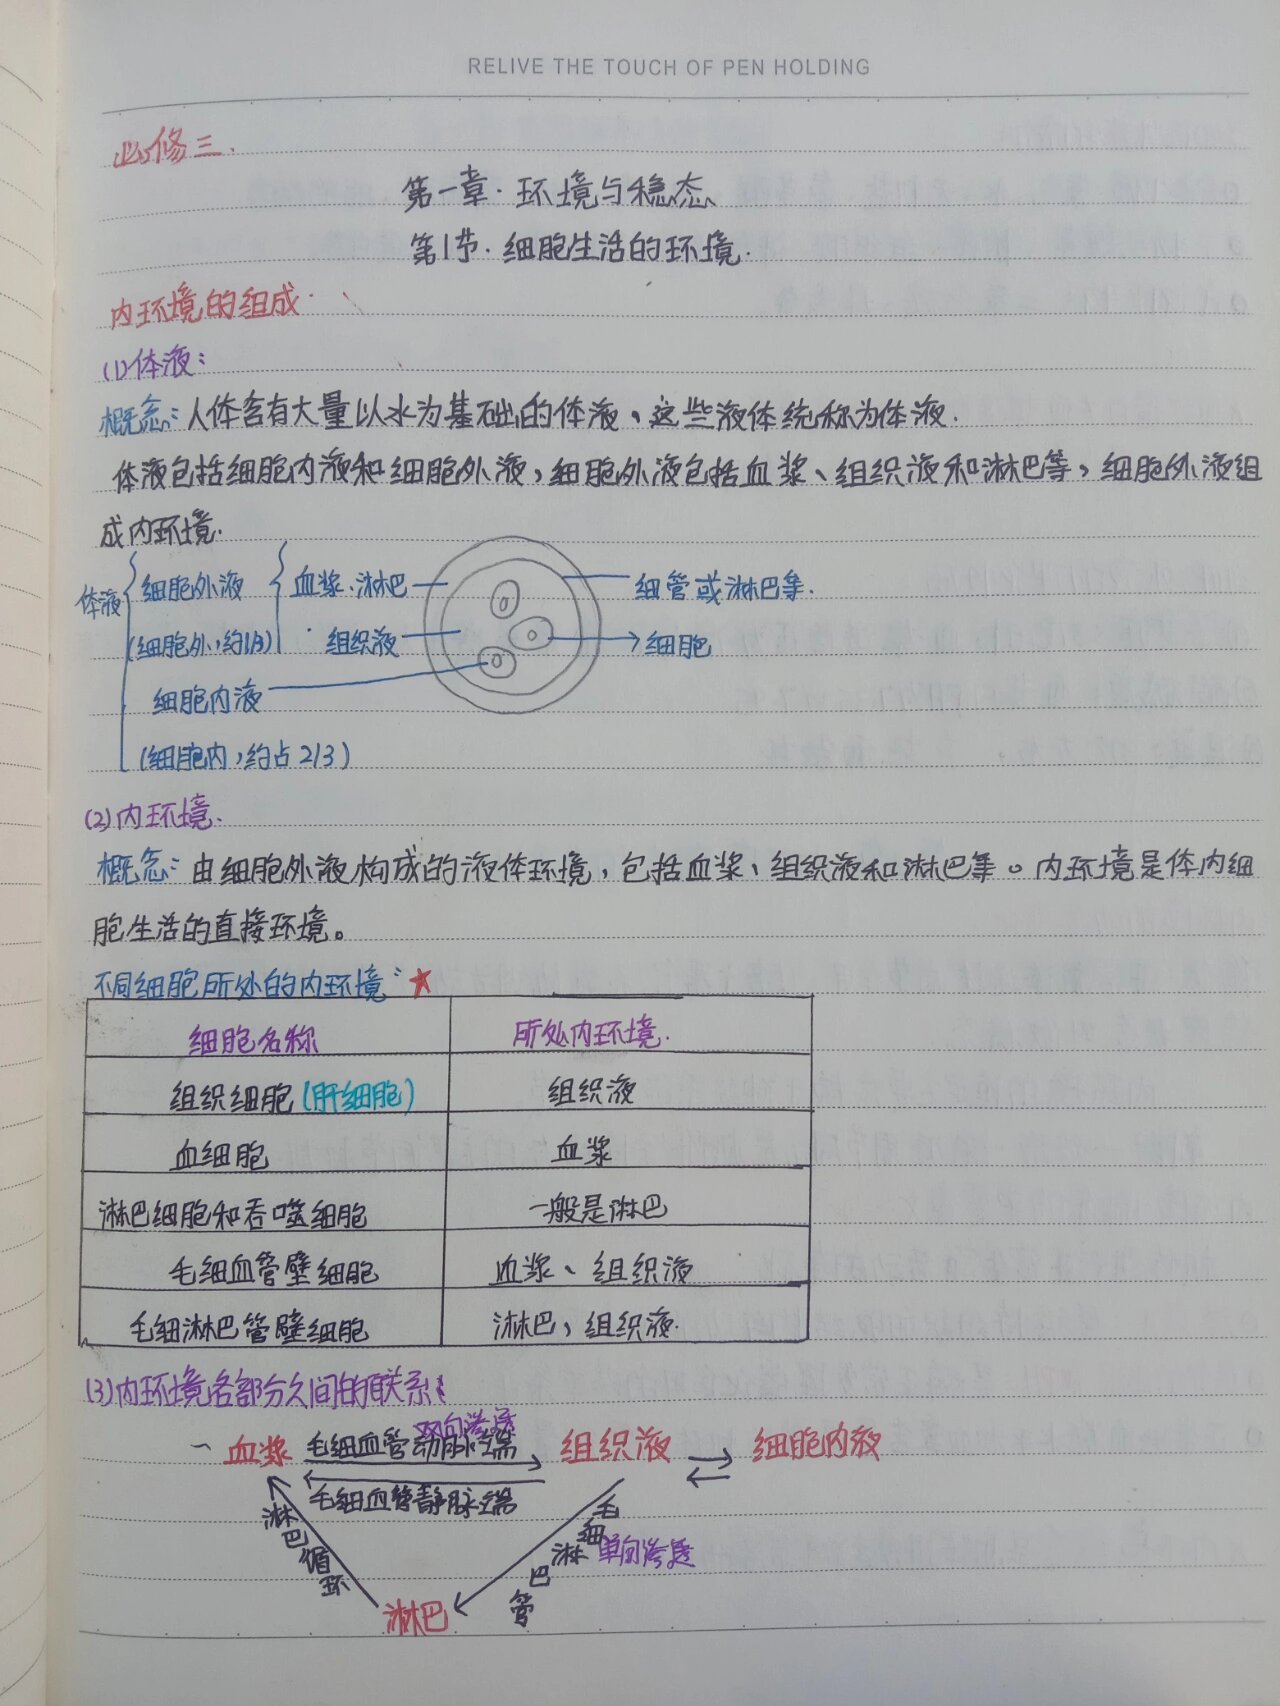 RELIVE THE TOUCH OF PEN HOLDING
必修三.
第一章·环境与稳态
第1节·细胞生活的环境.
内环境的组成·
(1)体液:
概念:人体含有大量以水为基础的体液、这些液体统称为体液.
体液包括细胞内液和细胞外液,细胞外液包括血浆、组织液和淋巴等,细胞外液组
成内环境.
体液
细胞外液
血浆、淋巴
细管或淋巴等.
(细胞外,约1/3)
组织液
细胞
细胞内液
(细胞内,约占2/3)
(2)内环境.
概念:由细胞外液构成的液体环境,包括血浆、组织液和淋巴等。内环境是体内细
胞生活的直接环境。
不同细胞所处的内环境:★
细胞名称 所处内环境.
组织细胞(肝细胞) 组织液
血细胞 血浆
淋巴细胞和吞噬细胞 一般是淋巴
毛细血管壁细胞 血浆、组织液
毛细淋巴管壁细胞 淋巴,组织液.
(3)内环境各部分之间的联系:
双向渗透
血浆 毛细血管动脉端 组织液 细胞内液
毛细血管静脉端
淋巴循环
毛细淋巴管
单向渗透
淋巴